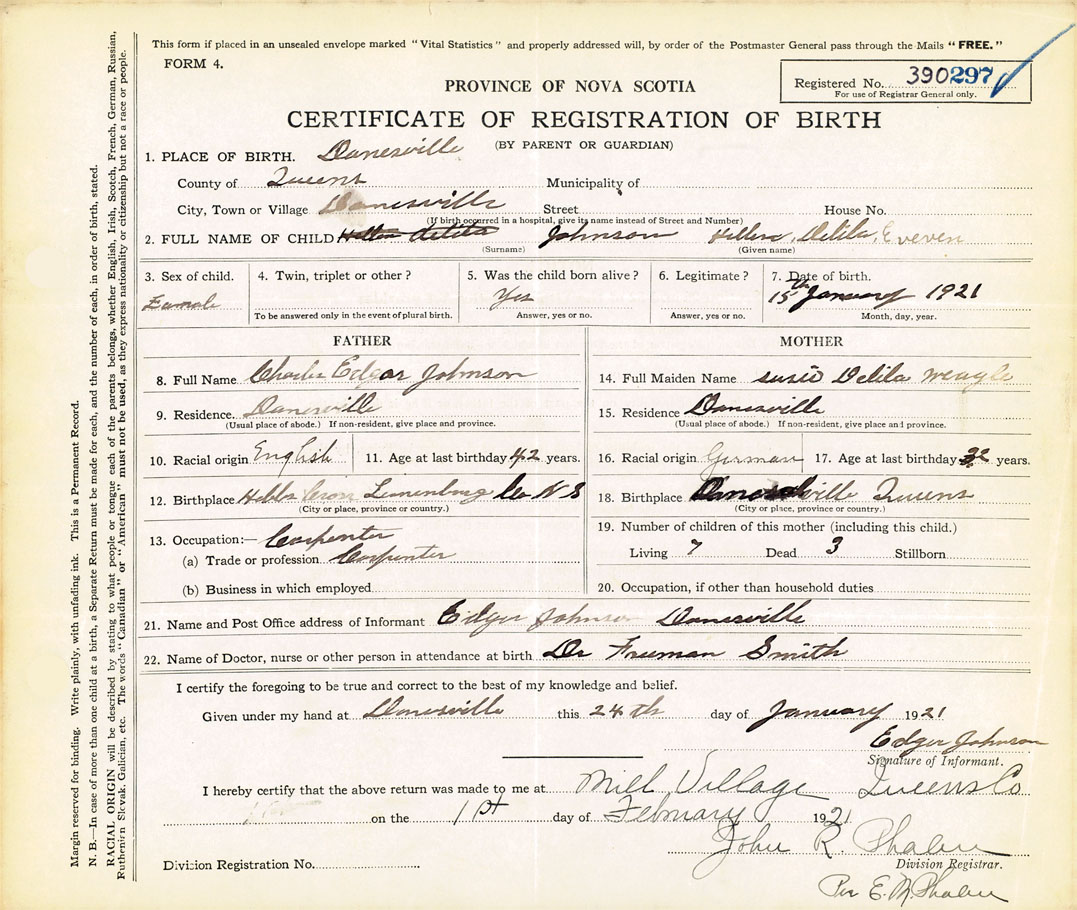 This form if placed in an unsealed envelope marked "Vital Statistics" and properly addressed will, by order of the Postmaster General pass through the Mails "FREE."
FORM 4.
Registered No. 390297
For use of Registrar General only.
PROVINCE OF NOVA SCOTIA
CERTIFICATE OF REGISTRATION OF BIRTH
(BY PARENT OR GUARDIAN)
1. PLACE OF BIRTH. Danesville
County of Queens Municipality of
City, Town or Village Danesville Street House No.
(If birth occurred in a hospital, give its name instead of Street and Number)
2. FULL NAME OF CHILD Johnson Hellen Delila Eveven
(Surname) (Given name)
3. Sex of child. 4. Twin, triplet or other? 5. Was the child born alive? 6. Legitimate? 7. Date of birth.
Eamale Yes 15th January 1921
To be answered only in the event of plural birth. Answer, yes or no. Answer, yes or no. Month, day, year.
FATHER MOTHER
8. Full Name Charles Edgar Johnson 14. Full Maiden Name susie Delila Weagle
9. Residence. Danesville 15. Residence Danesville
(Usual place of abode.) If non-resident, give place and province. (Usual place of abode.) If non-resident, give place and province.
10. Racial origin English 11. Age at last birthday 42 years. 16. Racial origin German 17. Age at last birthday years.
12. Birthplace Hebbs Cross Lunenburg Co N S 18. Birthplace Queens
(City or place, province or country.) (City or place, province or country.)
13. Occupation:— Carpenter 19. Number of children of this mother (including this child.)
(a) Trade or profession Carpenter Living 7 Dead 3 Stillborn
(b) Business in which employed 20. Occupation, if other than household duties
21. Name and Post Office address of Informant Edger Johnson Danesville
22. Name of Doctor, nurse or other person in attendance at birth Dr Freeman Smith
I certify the foregoing to be true and correct to the best of my knowledge and belief.
Given under my hand at Danesville this 24th day of January 1921
Edger Johnson
Signature of Informant.
I hereby certify that the above return was made to me at Mill Village Queens Co
on the 1st day of February 1921
John R. Phalen
Division Registrar.
Division Registration No.
Per E. M. Phalen
Margin reserved for binding. Write plainly, with unfading ink. This is a Permanent Record.
N. B.—In case of more than one child at a birth, a Separate Return must be made for each, and the number of each, in order of birth, stated.
RACIAL ORIGIN will be described by stating to what people or tongue each of the parents belongs, whether English, Irish, Scotch, French, German, Russian,
Ruthenian Slovak, Galician, etc. The words "Canadian" or "American" must not be used, as they express nationality or citizenship but not a race or people.